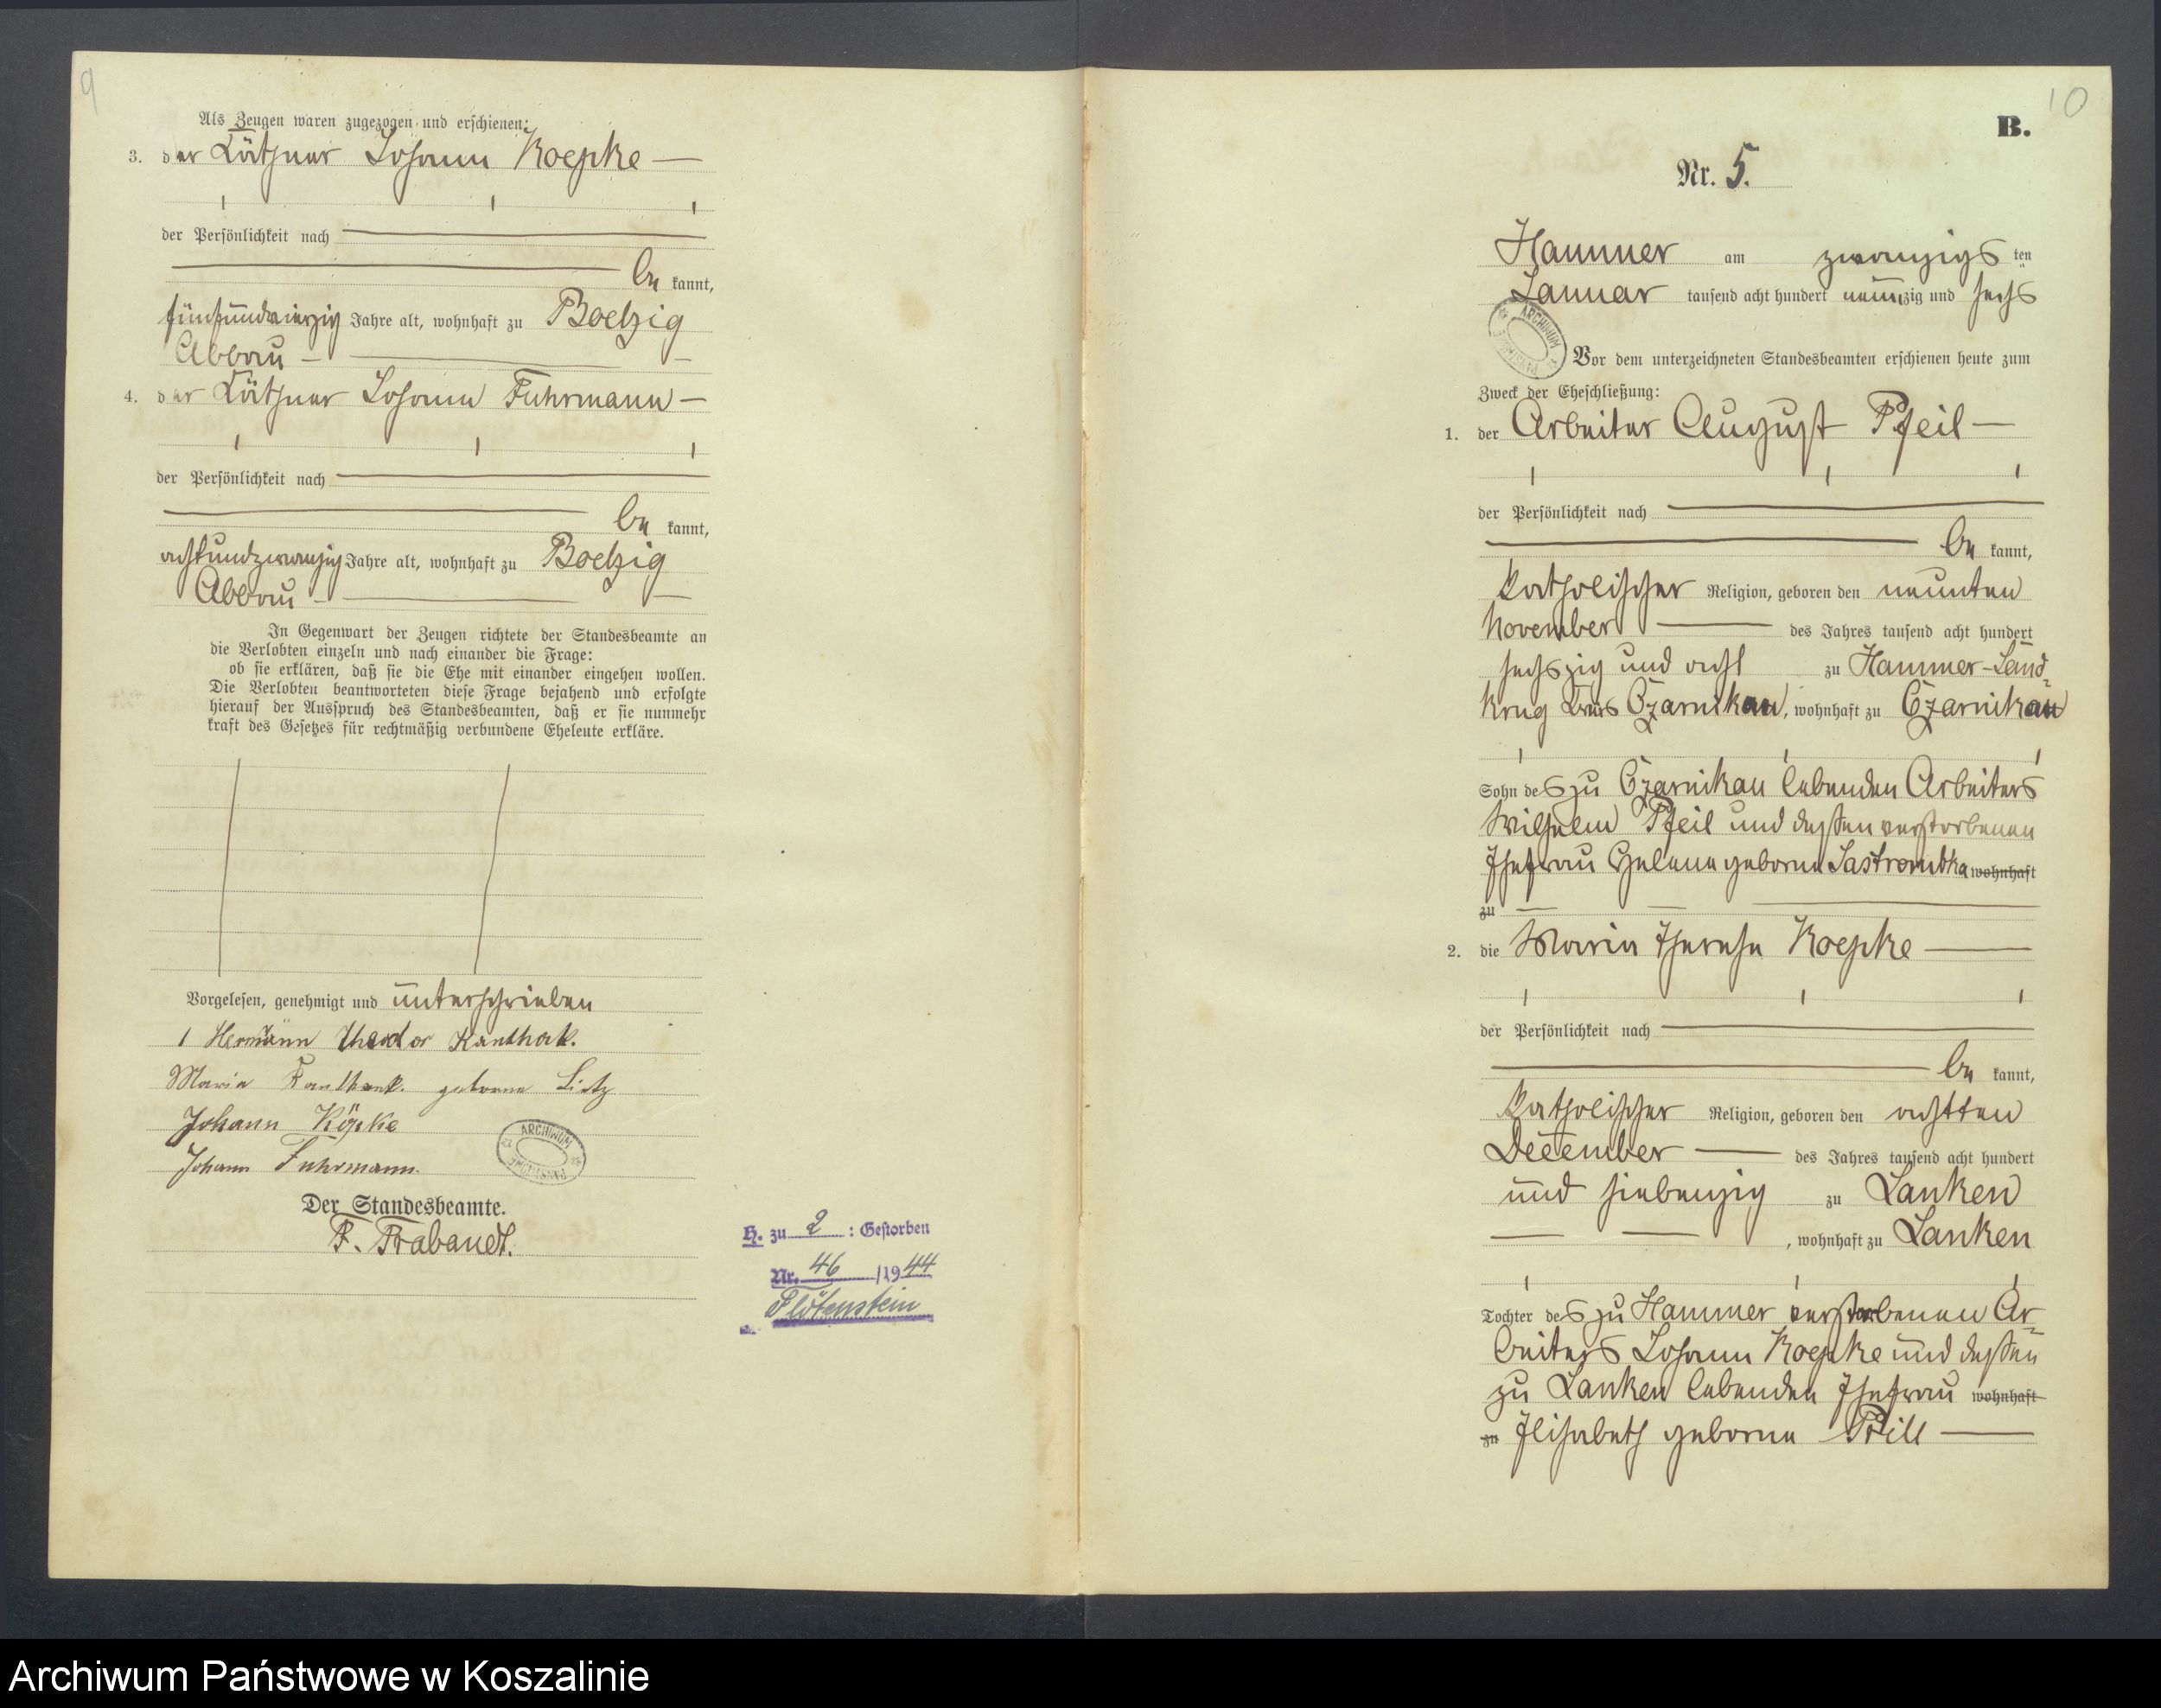 9
Als Zeugen waren zugezogen und erschienen:
3. der Käthner Johann Koepke
der Persönlichkeit nach
be kannt,
fünfundvierzig Jahre alt, wohnhaft zu Boelzig
Abbau
4. der Käthner Johann Fuhrmann
der Persönlichkeit nach
be kannt,
achtundzwanzig Jahre alt, wohnhaft zu Boelzig
Abbau
In Gegenwart der Zeugen richtete der Standesbeamte an
die Verlobten einzeln und nach einander die Frage:
ob sie erklären, daß sie die Ehe mit einander eingehen wollen.
Die Verlobten beantworteten diese Frage bejahend und erfolgte
hierauf der Ausspruch des Standesbeamten, daß er sie nunmehr
kraft des Gesetzes für rechtmäßig verbundene Eheleute erkläre.
Vorgelesen, genehmigt und unterschrieben
Hermann Theodor Kanthak.
Maria Kanthak. geborene Lietz
Johann Köpke
Johann Fuhrmann.
ARCHIWUM
Der Standesbeamte.
F. Brabandt.
H. zu 2 : Gestorben
Nr. 46 /1944
Flötenstein
10
B.
Nr. 5.
Hammer am zwanzigs ten
Januar tausend acht hundert neunzig und sechs
ARCHIWUM
Vor dem unterzeichneten Standesbeamten erschienen heute zum
Zweck der Eheschließung:
1. der Arbeiter August Pfeil
der Persönlichkeit nach
be kannt,
katholischer Religion, geboren den neunten
November des Jahres tausend acht hundert
sechszig und acht zu Hammer-Land-
krug Kreis Czarnikau, wohnhaft zu Czarnikau
Sohn des zu Czarnikau lebenden Arbeiters
Wilhelm Pfeil und dessen verstorbenen
Ehefrau Helene geborene wohnhaft
zu
2. die Maria Therese Koepke
der Persönlichkeit nach
be kannt,
katholischer Religion, geboren den achtten
December des Jahres tausend acht hundert
und siebenzig zu Lanken
, wohnhaft zu Lanken
Tochter des zu Hammer verstorbenen Ar-
beiters Johann Koepke und dessen
zu Lanken lebenden Ehefrau wohnhaft
zu Elisabeth geborene Prill
Archiwum Państwowe w Koszalinie